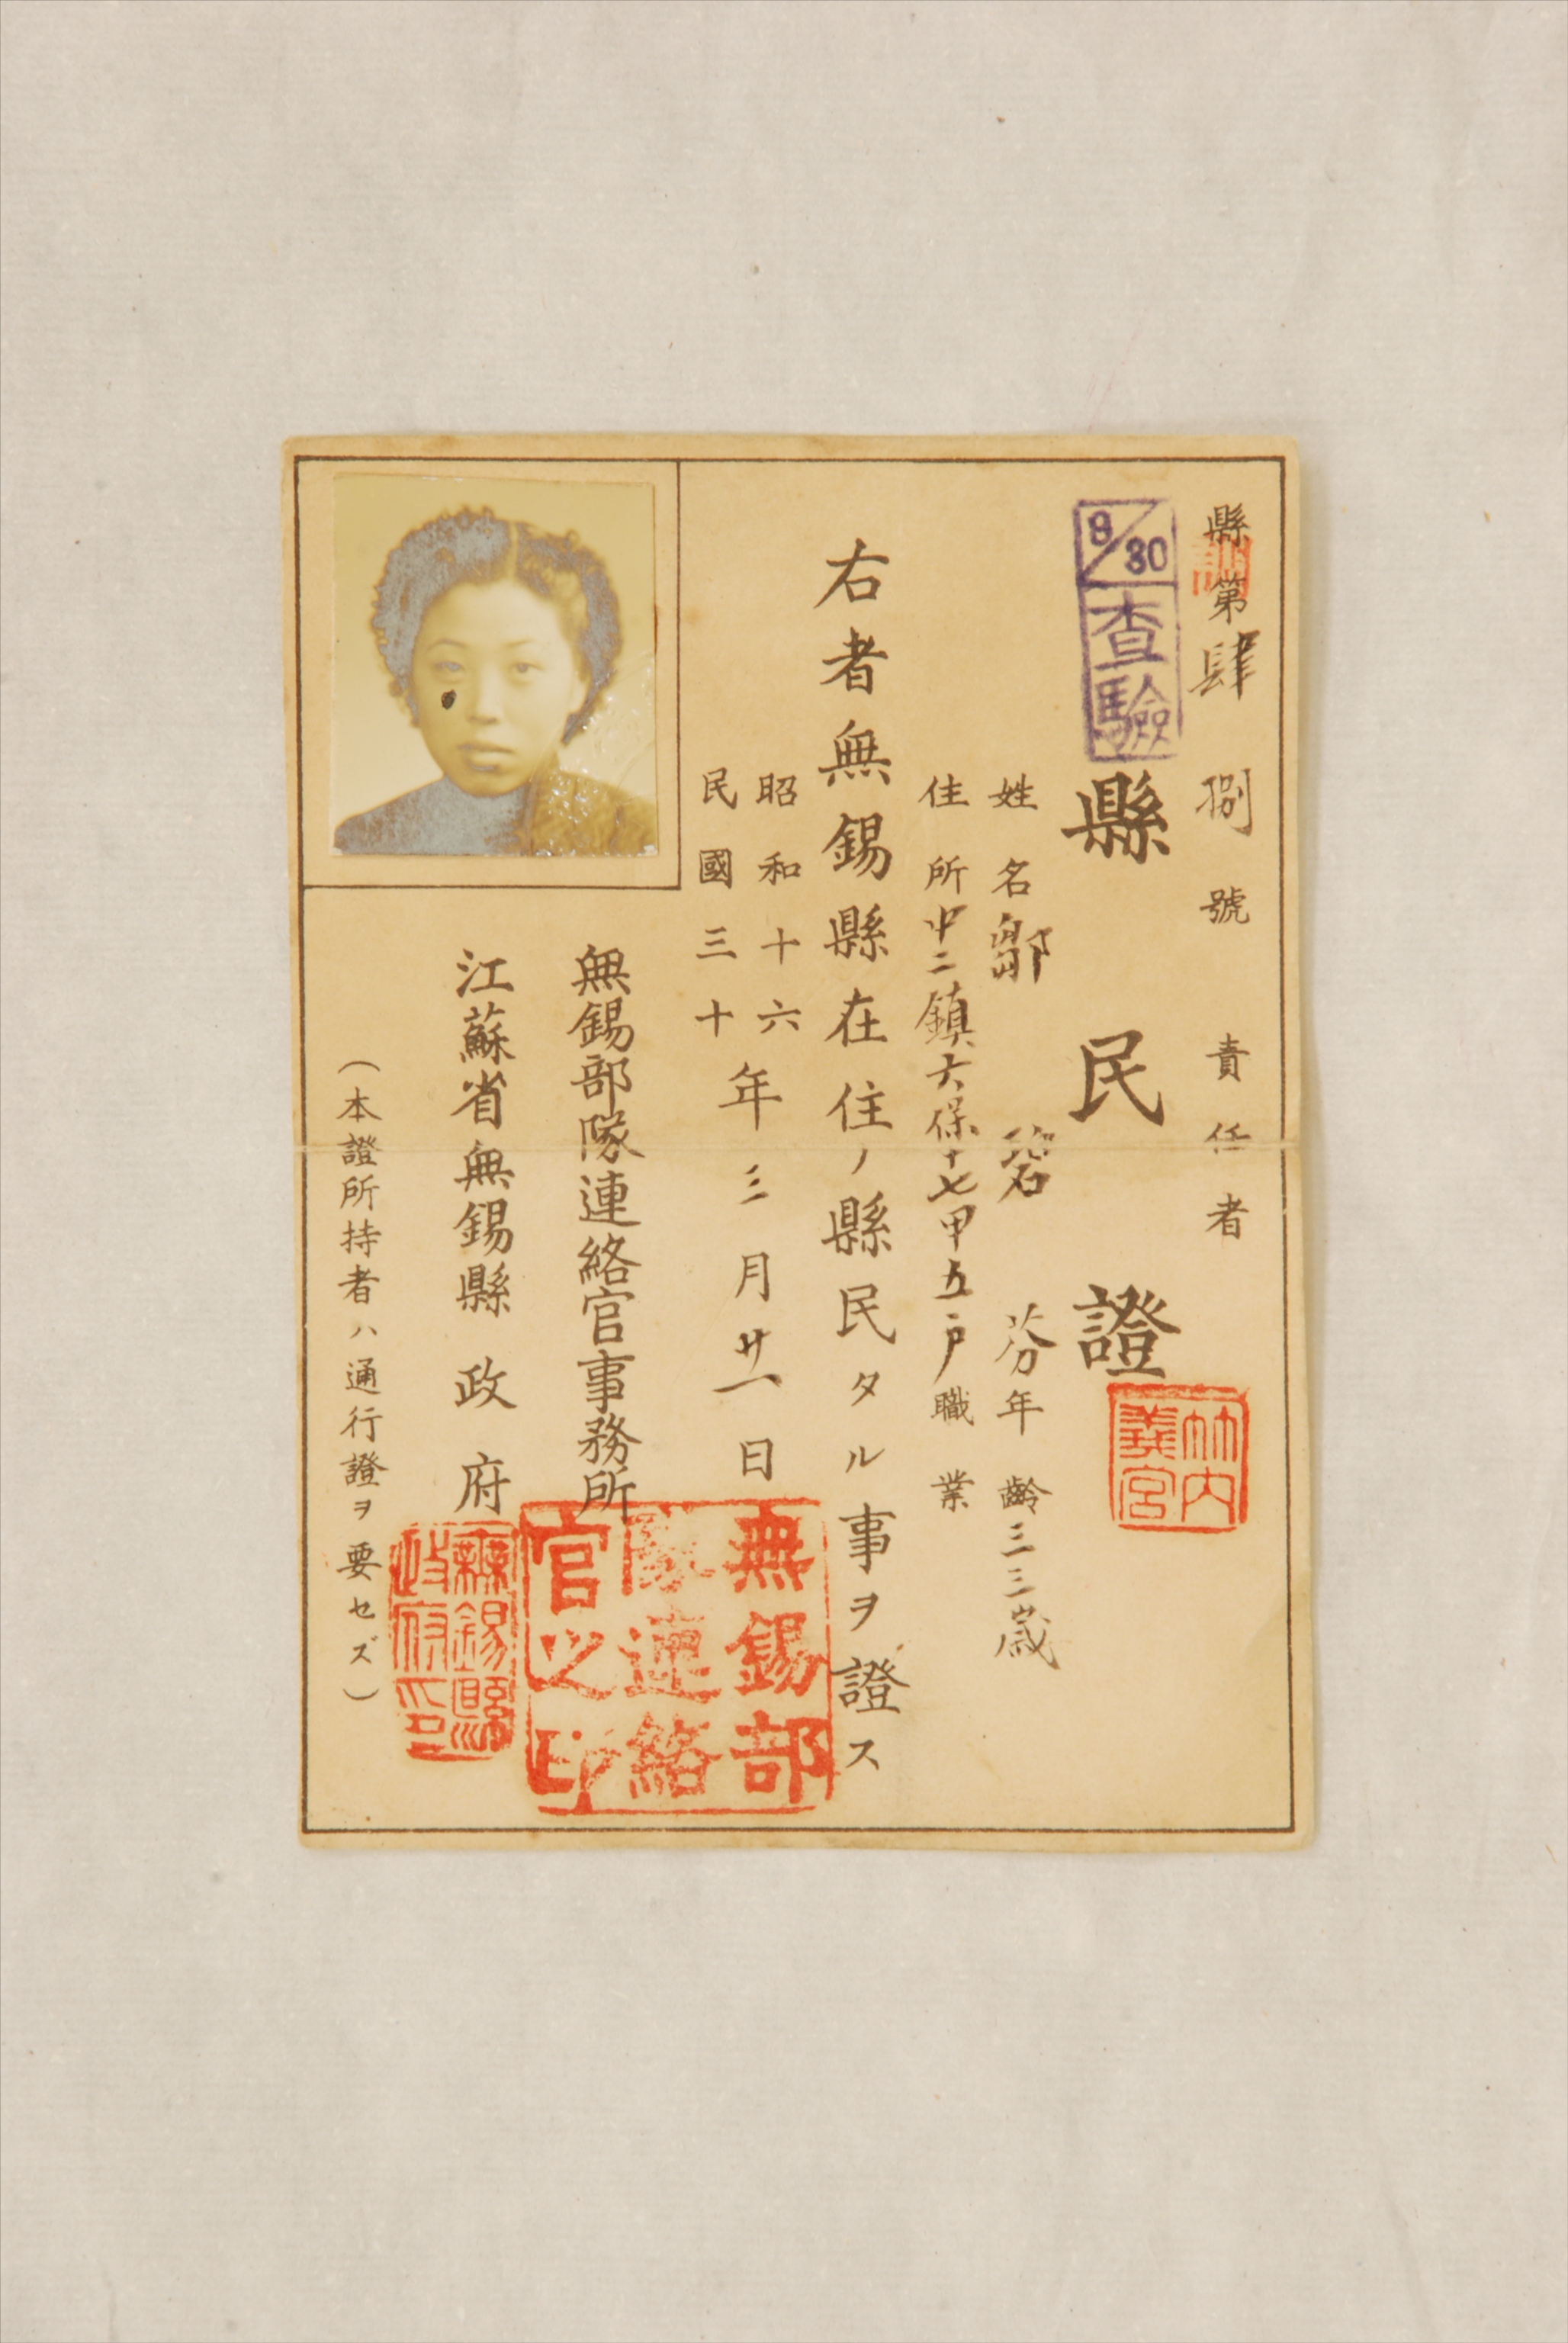 縣第肆捌號 責任者
8/30
查驗
縣民證
竹內義宮
姓名鄒碧芬年齡三三歲
住所中二鎮六保十七甲五戶職業
右者無錫縣在住ノ縣民タル事ヲ證ス
昭和十六
民國三十
年三月廿一日
無錫部隊連絡官事務所
無錫部隊連絡官之印
江蘇省無錫縣政府
無錫縣政府印
(本證所持者ハ通行證ヲ要セズ)